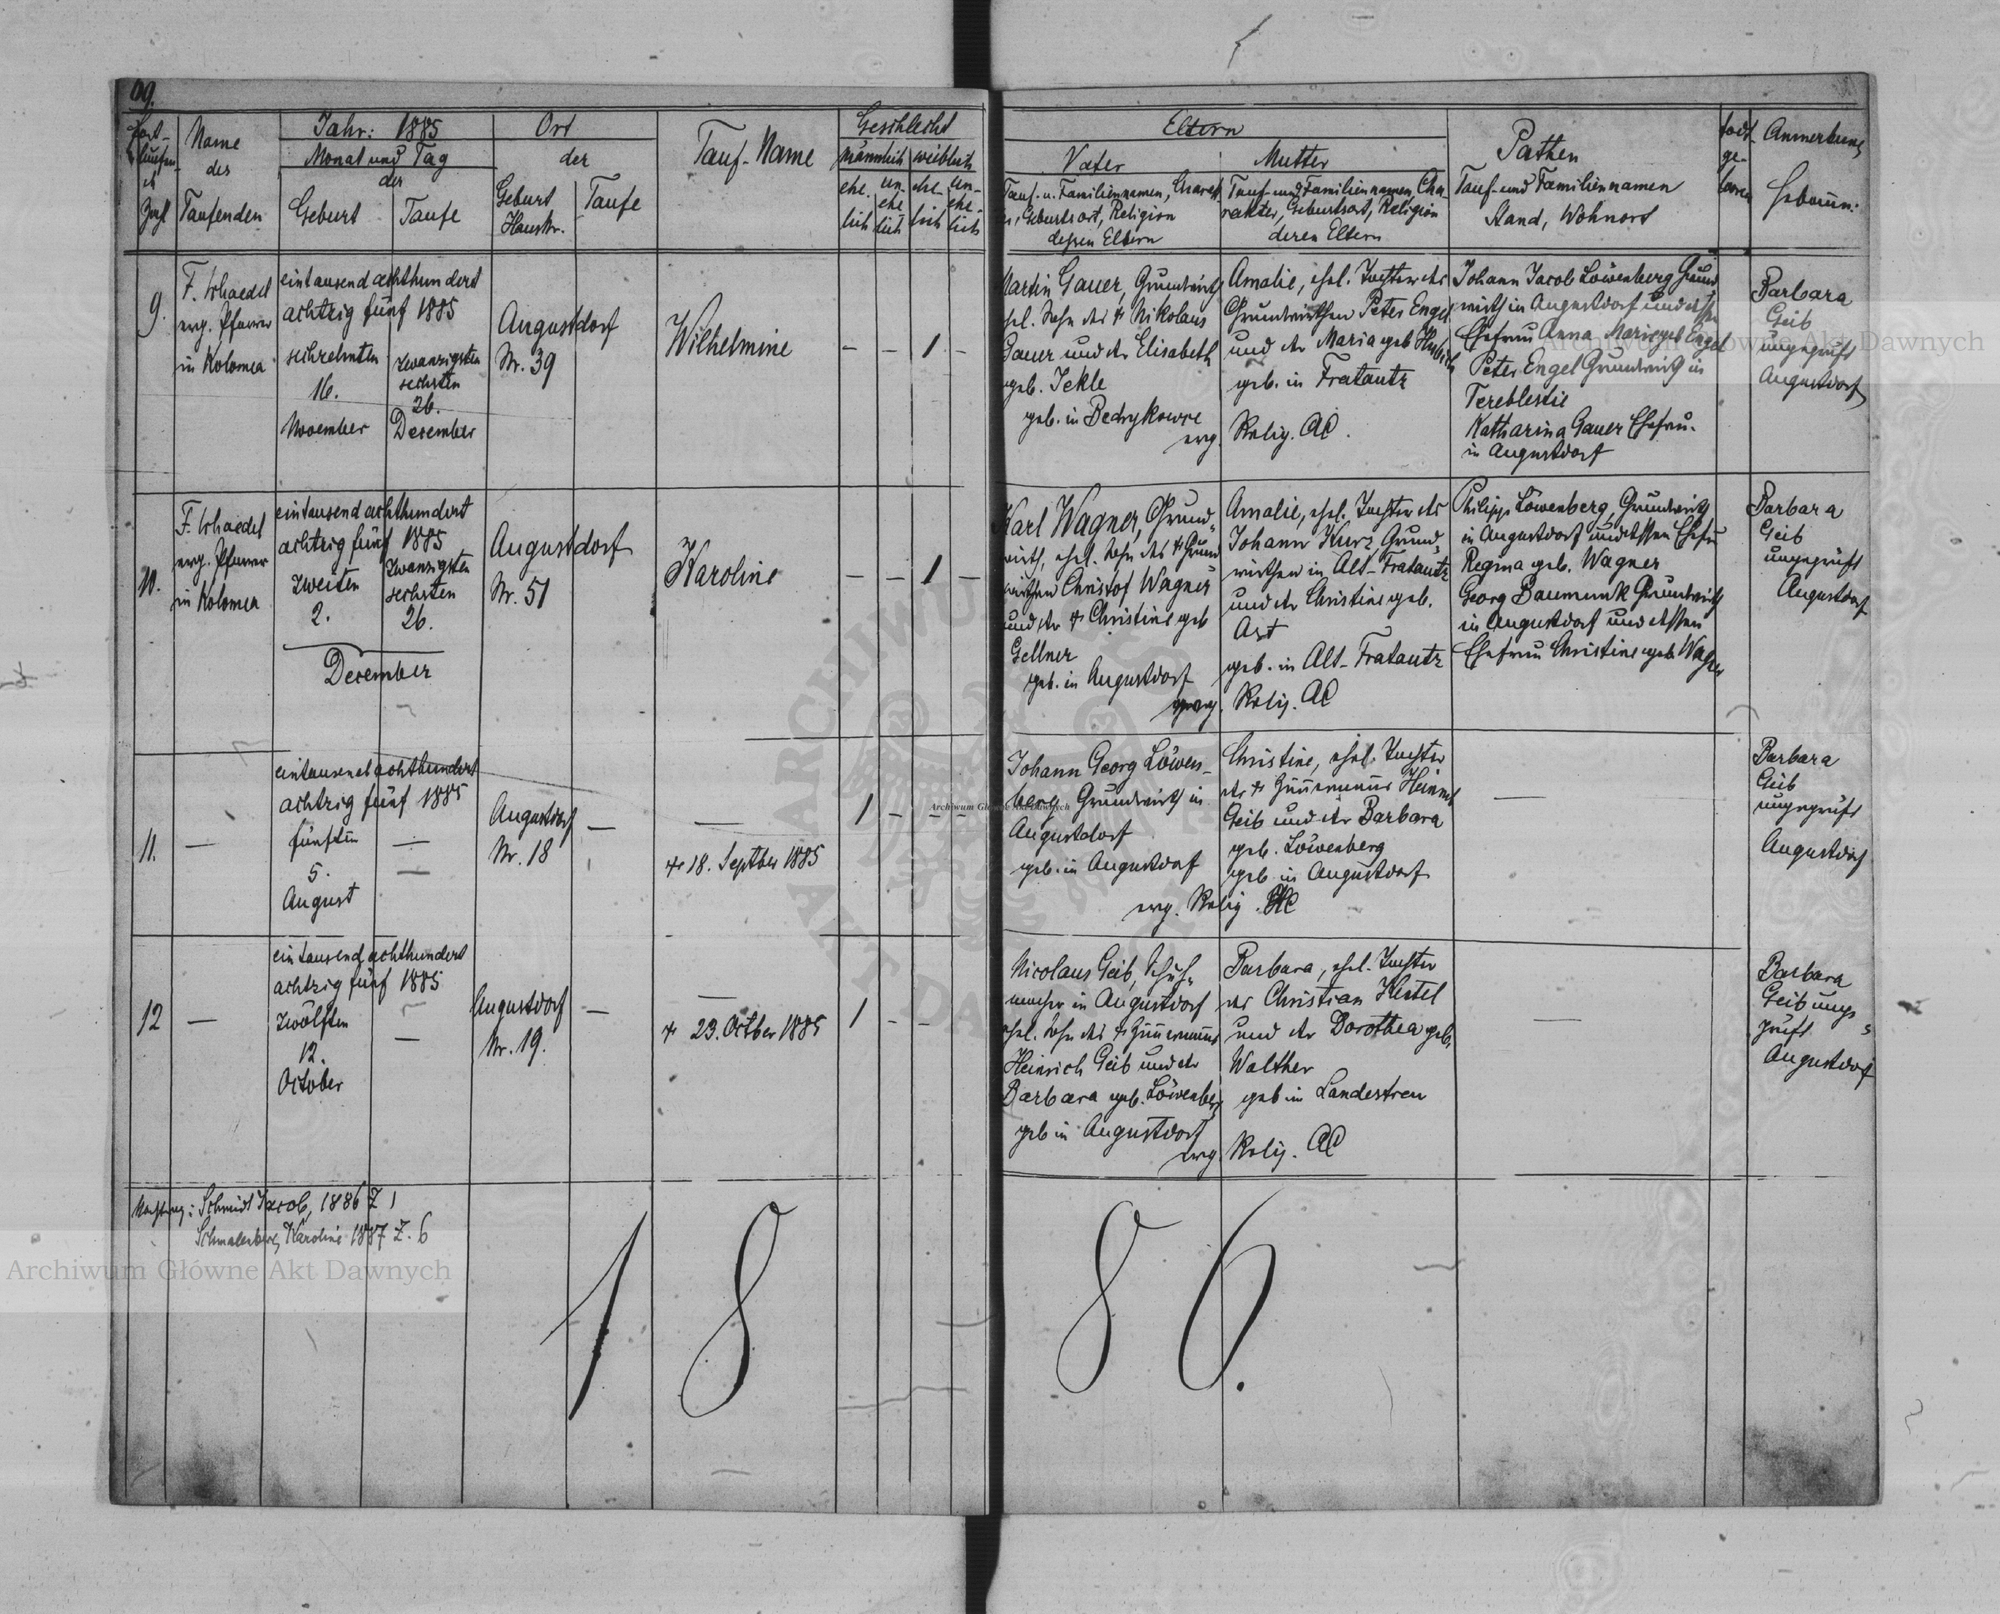 69.
Fort-
laufen-
de
Zahl
Name
der
Taufenden
Jahr: 1885
Monat und Tag
der
Geburt
Taufe
Ort
der
Geburt
Haus Nr.
Taufe
Tauf-Name
Geschlecht
männlich weiblich
ehe-
lich
un-
ehe-
lich
ehe-
lich
un-
ehe-
lich
Eltern
Vater
Tauf- u. Familiennamen, Charakt
Geburtsort, Religion
dessen Eltern
Mutter
Tauf- und Familiennamen, Cha-
rakter, Geburtsort, Religion
deren Eltern
Pathen
Tauf- und Familiennamen
Stand, Wohnort
todt
ge-
boren
Anmerkung
Hebamm:
9.
F. Schaedel
evg. Pfarrer
in Kolomea
eintausend achthundert
achtzig fünf 1885
sechzehnten
16.
November
zwanzigsten
sechsten
26.
December
Augustdorf
Nr. 39
Wilhelmine
— — 1 —
Martin Gauer, Grundwirth
ehel. Sohn des † Nikolaus
Gauer und der Elisabeth
geb. Jekle
geb. in Bedrykowce
evg.
Amalie, ehel. Tochter des
Grundwirthen Peter Engel
und der Maria geb
geb. in Fratautz
Relig. AC.
Johann Jacob Löwenberg Grund
wirth in Augustdorf und dessen
Ehefrau Anna Marie geb Engel
Peter Engel Grundwirth in
Tereblestie
Katharina Gauer Ehefrau
in Augustdorf
Barbara
Geib
ungeprüft
Augustdorf
10.
F. Schaedel
evg. Pfarrer
in Kolomea
eintausend achthundert
achtzig fünf 1885
zweiten
2.
zwanzigsten
sechsten
26.
December
Augustdorf
Nr. 51
Karoline
— — 1 —
Karl Wagner, Grund-
wirth, ehel. Sohn des † Grund
wirthen Christof Wagner
und der † Christine geb
Gellner
geb. in Augustdorf
evg.
Amalie, ehel. Tochter des
Johann Kurz Grund-
wirthen in Alt-Fratautz
und der Christine geb.
Art
geb. in Alt-Fratautz
Relig. AC
Philipp Löwenberg, Grundwirth
in Augustdorf und dessen Ehefrau
Regina geb. Wagner
Georg Baumunk Grundwirth
in Augustdorf und dessen
Ehefrau Christine geb. Wagner
Barbara
Geib
ungeprüft
Augustdorf
11.
—
eintausend achthundert
achtzig fünf 1885
fünften
5.
August
—
—
Augustdorf
Nr. 18
—
—
† 18. Septber 1885
1 - - -
Johann Georg Löwen-
berg Grundwirth in
Augustdorf
geb. in Augustdorf
evg.
Christine, ehel. Tochter
des † Zimmermanns Heinrich
Geib und der Barbara
geb. Löwenberg
geb in Augustdorf
Relig. AC
—
Barbara
Geib
ungeprüft
Augustdorf
12
—
eintausend achthundert
achtzig fünf 1885
zwölften
12.
October
—
Augustdorf
Nr. 19.
—
—
† 23. Octber 1885
1 - -
Nicolaus Geib, Schuh-
macher in Augustdorf
ehel. Sohn des † Zimmermanns
Heinrich Geib und der
Barbara geb. Löwenberg
geb in Augustdorf
evg.
Barbara, ehel. Tochter
des Christian Kestel
und der Dorothea geb.
Walther
geb in Landestreu
Relig. AC
—
Barbara
Geib unge-
prüft
Augustdorf
Nachtrag: Schmidt Jacob, 1886 Z 1
Schmalenberg Karoline 1887 Z. 6
1 8 8 6.
Archiwum Główne Akt Dawnych
Archiwum Główne Akt Dawnych
Archiwum Główne Akt Dawnych